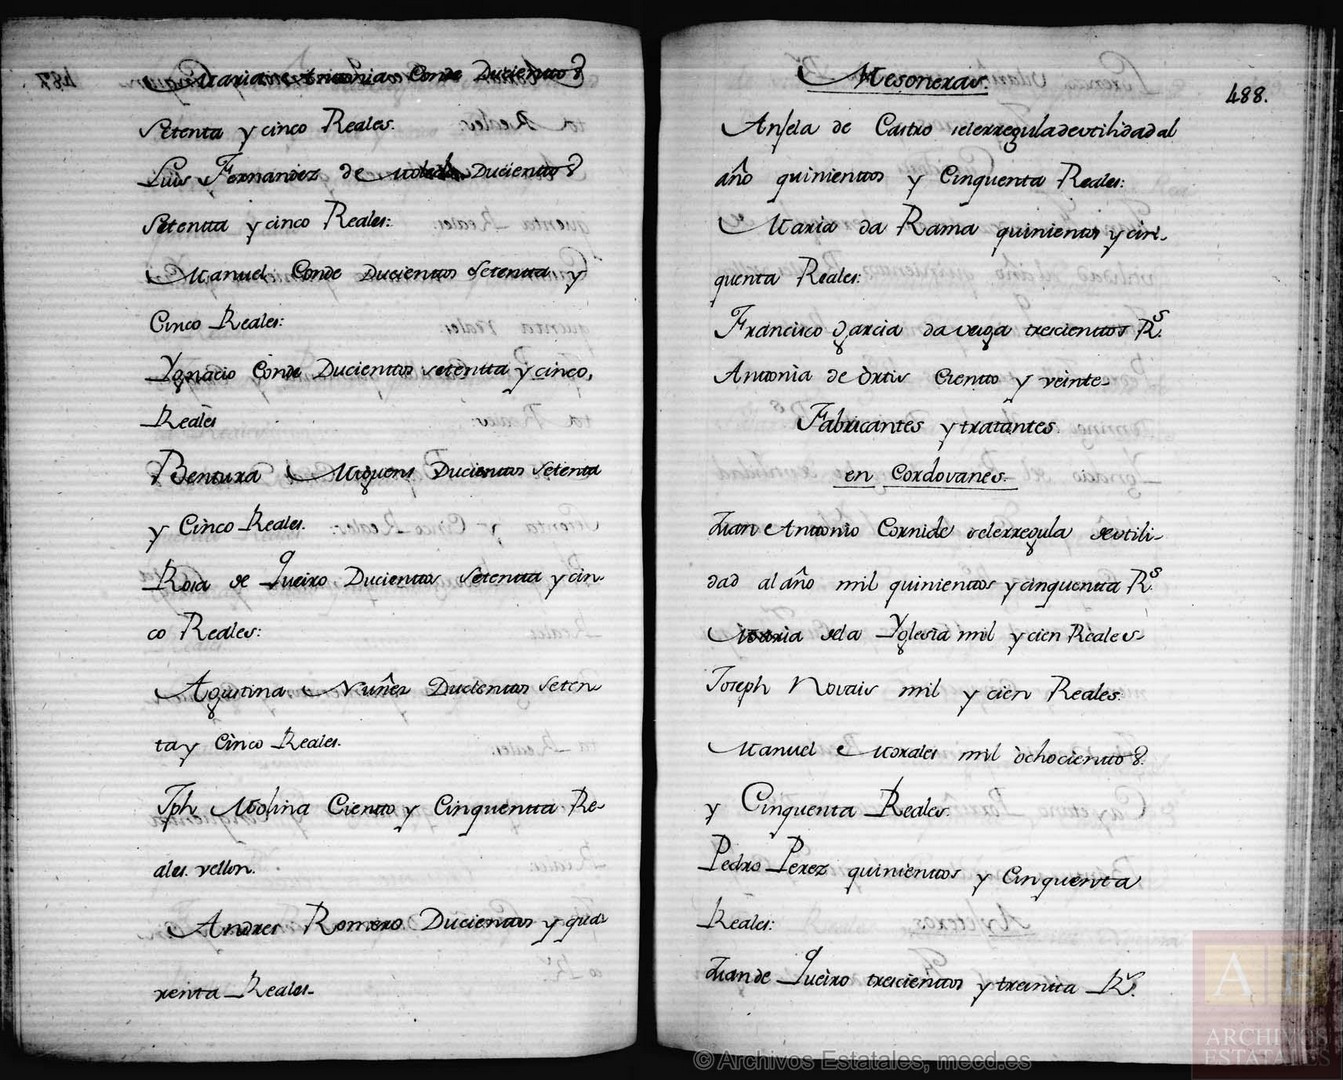 Maria Antonia Conde Ducientos
Setenta y cinco Reales.
Luis Fernandez de Ducientos
Setenta y cinco Reales:
Manuel Conde Ducientos Setenta y
Cinco Reales:
Ygnacio Conde Ducientos setentta y cinco,
Reales
Bentura Miguens Ducientos Setenta
y Cinco Reales.
Rosa de Queiro Ducientos Setentta y cin-
co Reales:
Agustina Nuñez Ducientos Seten-
ta y Cinco Reales.
Jph Molina Ciento y Cinquentta Re-
ales vellon.
Andres Romero Ducientos y qua-
renta Reales-
Mesoneras.
488.
Anjela de Castro selerregula de utilidad al
año quinientos y Cinquenta Reales:
Maria da Rama quinientos y cin-
quenta Reales:
Francisco Garcia da Veiga trescienttos Rs.
Antonia de Ortis Ciento y veinte-
Fabricantes y tratantes.
en Cordovanes.
Juan Antonio Cornide selerregula de utili-
dad al año mil quinientos y cinquenta Rs.
Maria dela Yglesia mil y cien Reales-
Joseph Novais mil y cien Reales.
Manuel Morales mil ochocientos
y Cinquenta Reales.
Pedro Perez quinientos y Cinquenta
Reales:
Juan de Queiro trescientos y treintta Rs.
© Archivos Estatales, mecd.es
AE
ARCHIVOS
ESTATALES